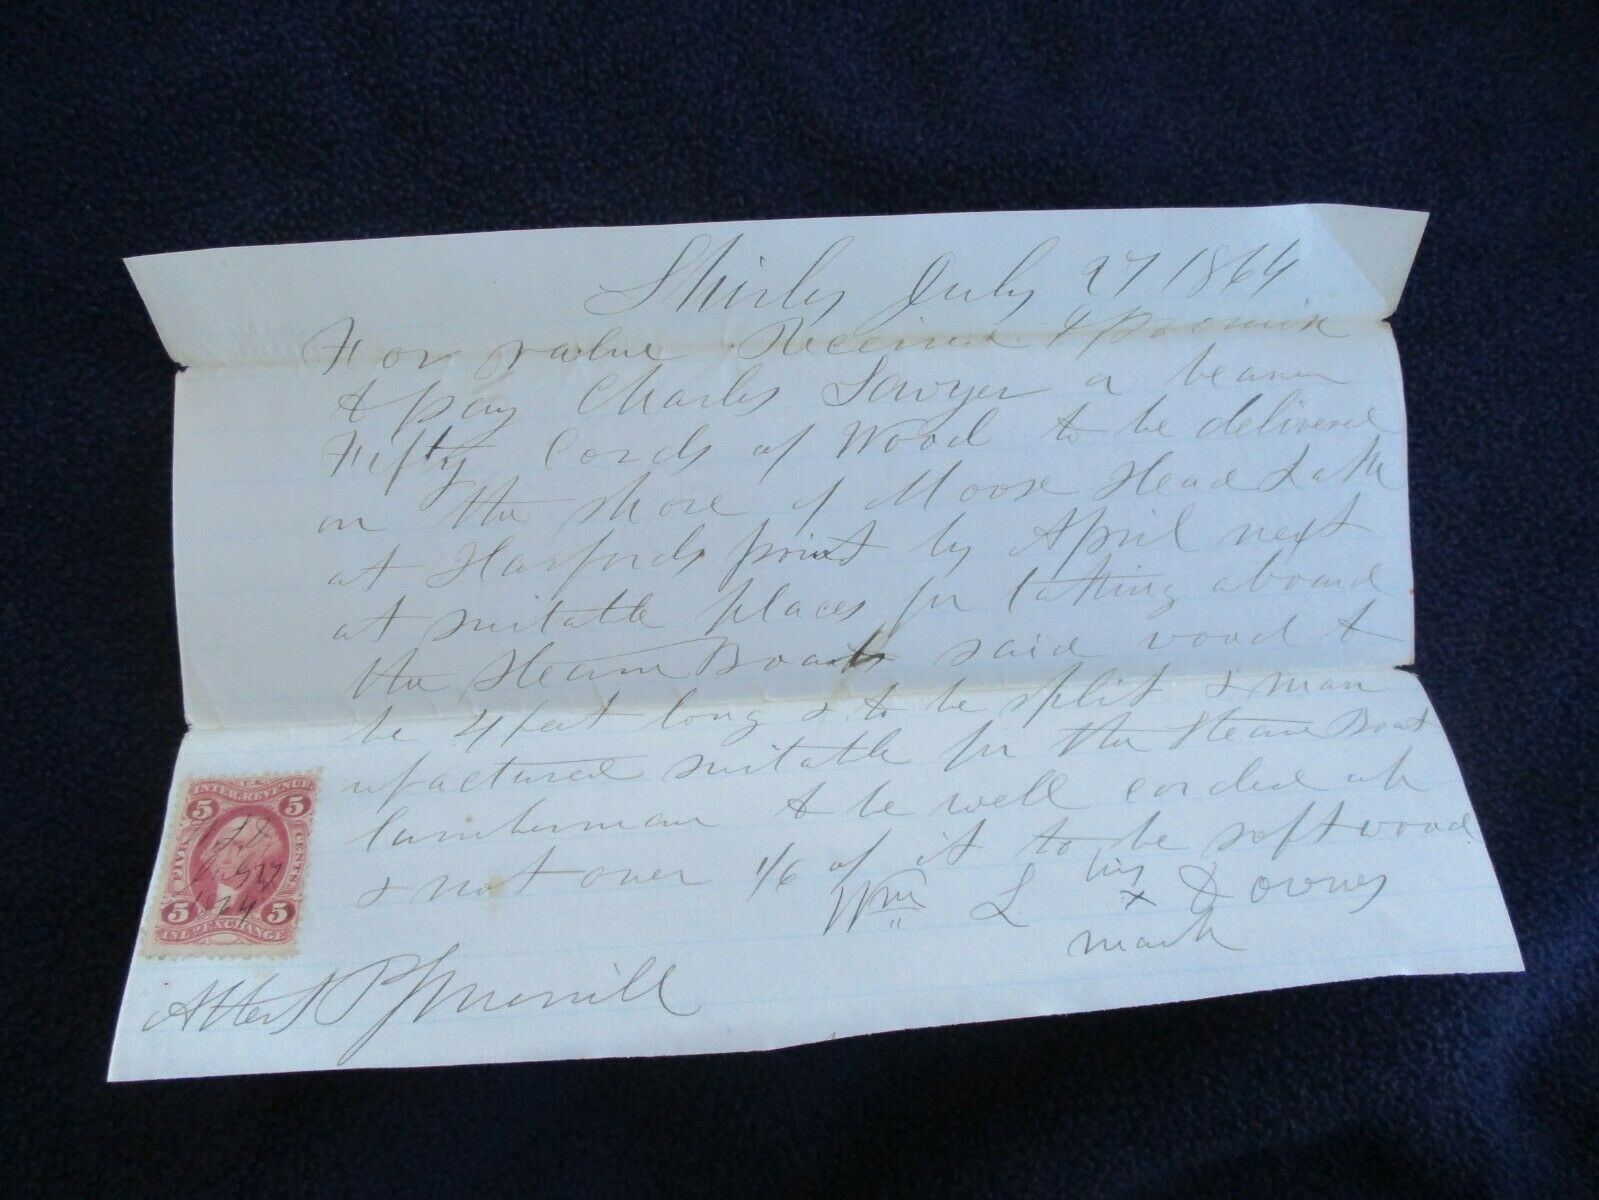 Shirley July 27 1864
For value Received I promise
to pay Charles Sawyer or bearer
Fifty Cords of Wood to be delivered
on the shore of Moose Head Lake
at Harfords point by April next
at suitable places for taking aboard
the Steam Boats said wood to
be 4 feet long & to be split & man
ufactured suitable for the Steam Boat
Lumberman to be well corded up
& not over 1/6 of it to be soft wood
Wm L his x Downes
mark
Attest P Merrill
U.S.
INTER. REVENUE
5 5
FIVE CENTS
July 27
5 5
INL. EXCHANGE